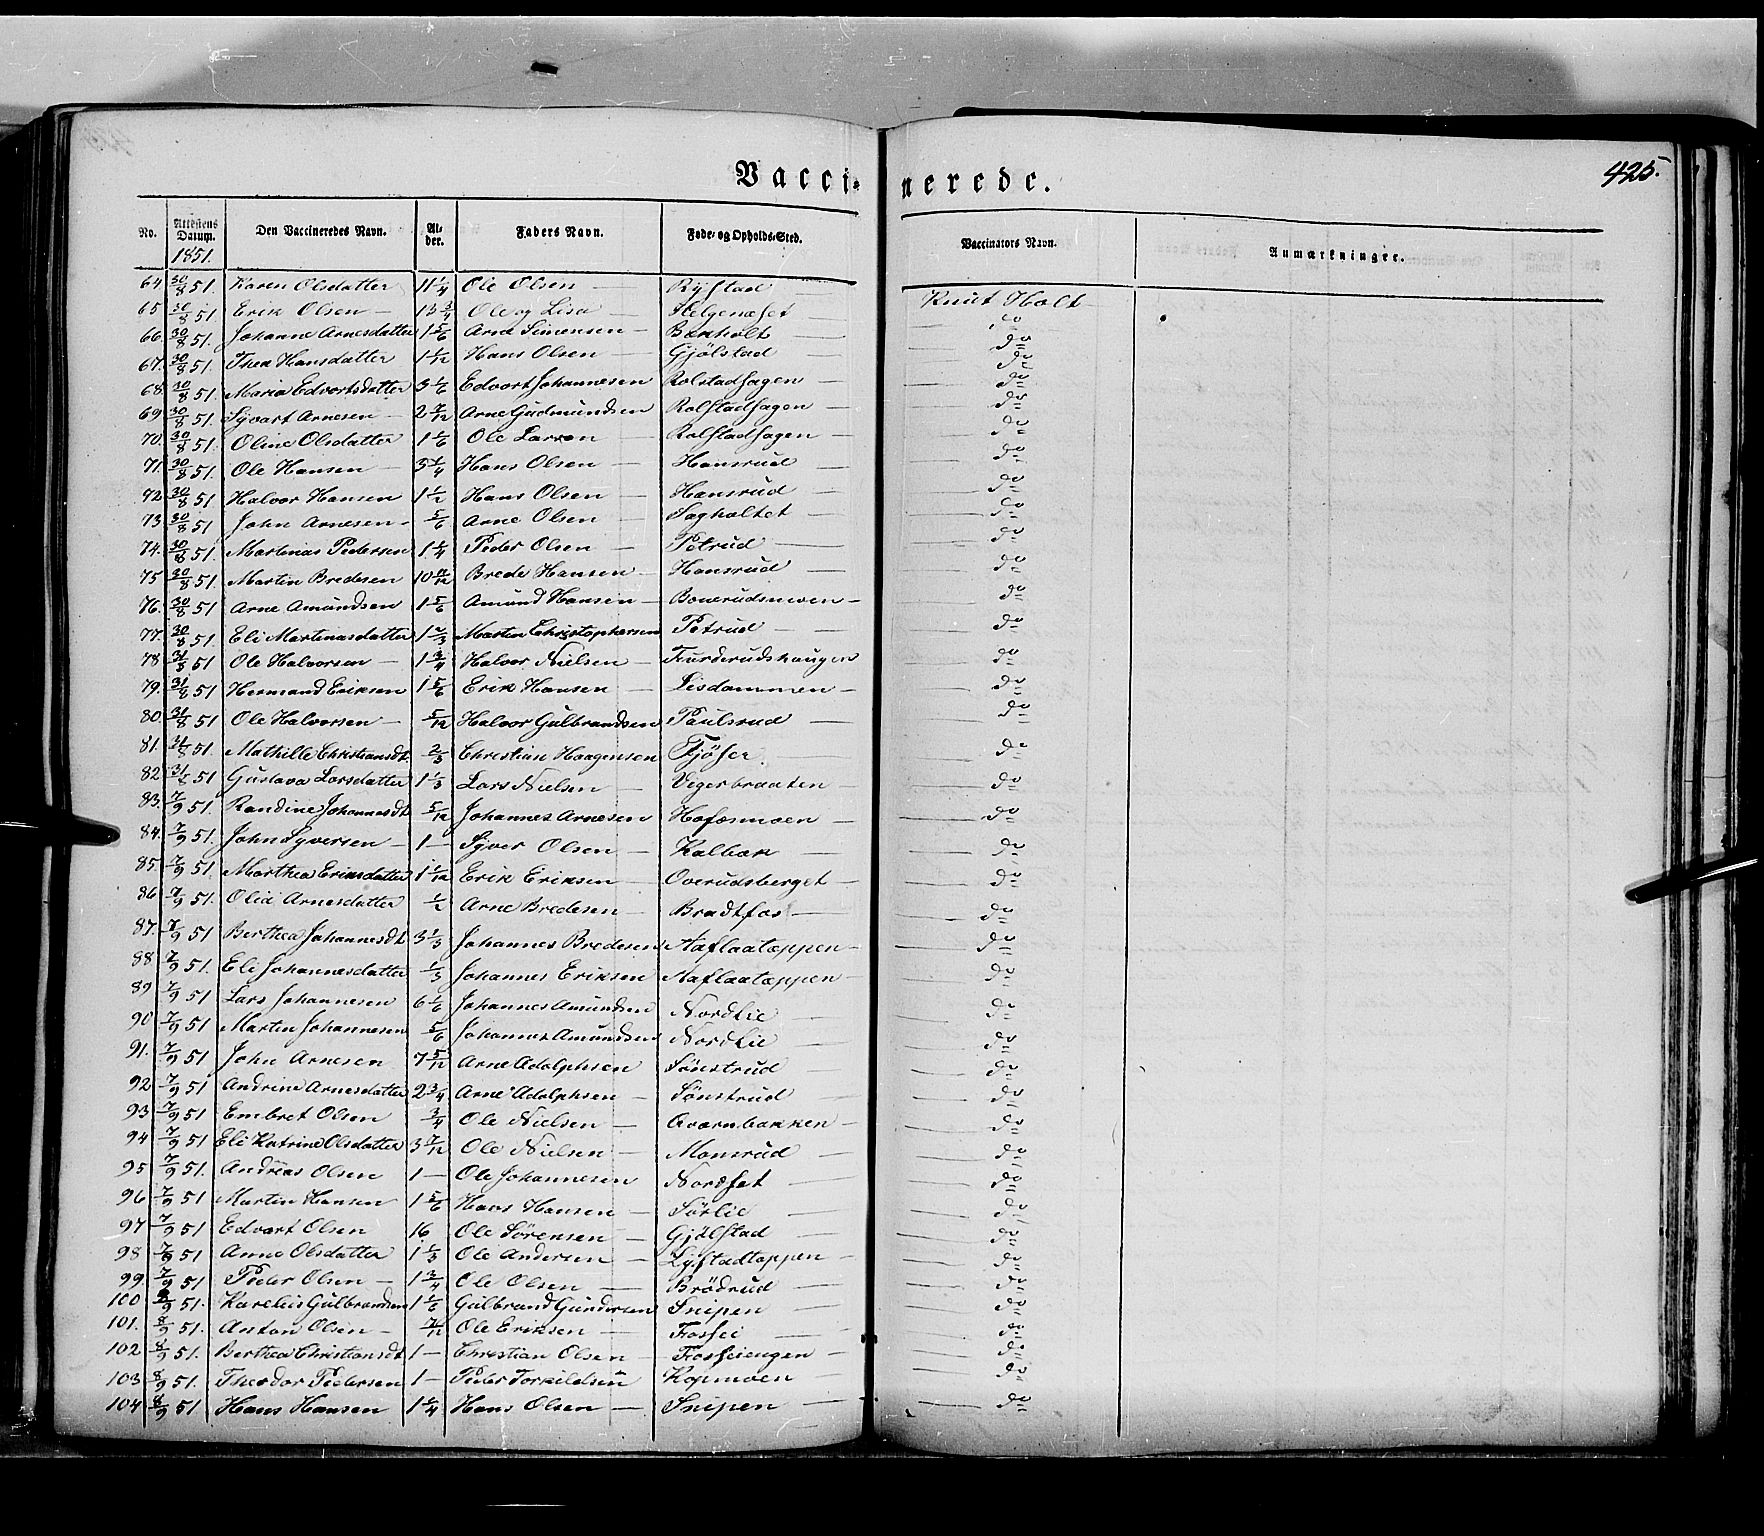 Vaccinerede.
425.
No. Attestens Datum. Den Vaccineredes Navn. Al-der. Faders Navn. Føde- og Opholds-Sted. Vaccinators Navn. Anmærkninger.
1851.
64 30/8 51. Karen Olsdatter 11 1/4 Ole Olsen — Rystad — Knut Holt
65 30/8 51 Erik Olsen — 13 3/4 Ole og Lisa Helgeneset — do
66. 30/8 51. Johanne Arnesdatter 1 5/6 Arne Simensen — Bakholt — do
67. 30/8 51. Thea Hansdatter 1 1/12 Hans Olsen — Gjölstad do
68. 30/8 51 Maria Edvartsdatter 3 1/6 Edvart Johannesen Rolstadhagen — do
69 30/8 51. Syvart Arnesen — 2 7/12 Arne Gudmundsen Rolstadhagen — do
70. 30/8 51. Oline Olsdatter 1 1/6 Ole Larsen — Rolstadhagen — do
71. 30/8 51. Ole Hansen — 3 1/4 Hans Olsen — Hansrud — do
72 30/8 51 Halvor Hansen 1 1/2 Hans Olsen — Hansrud — do
73 30/8 51 John Arnesen — 5/6 Arne Olsen — Sagholtet — do
74. 30/8 51. Martinus Pedersen 1 1/4 Peder Olsen — Petrud — do
75 30/8 51 Martin Bredesen 10 11/12 Brede Hansen — Hansrud — do
76. 30/8 51 Arne Amundsen 1 5/6 Amund Hansen — Bonerudsmoen — do
77. 30/8 51. Eli Martinusdatter 1 2/3 Martin Christophersen Petrud — do
78 31/8 51 Ole Halvorsen — 1 3/4 Halvor Nielsen — Furderudshaugen do
79. 31/8 51 Hermand Eriksen 1 5/6 Erik Hansen — Lisdammen — do
80. 31/8 51 Ole Halvorsen — 5/12 Halvor Gulbrandsen Paulsrud — do
81. 31/8 51. Mathille Christiansdt 2/3 Christian Haagensen Fjöser. do
82 31/8 51 Gustava Larsdatter 1 1/3 Lars Nielsen — Vegerbraaten do
83. 7/9 51. Randine Johannesdt 5/12 Johannes Arnesen Hofosmoen — do
84. 7/9 51. John Syversen — 1 — Syver Olsen — Kalbak — do
85. 7/9 51. Marthea Eriksdatter 1 1/12 Erik Eriksen — Overudsberget — do
86 7/9 51. Olia Arnesdatter 1/2 Arne Bredesen — Bradtfos — do
87. 7/9 51 Berthea Johannesdt 3 1/3 Johannes Bredesen Aaflaatæppen — do
88 7/9 51. Eli Johannesdatter 1/3 Johannes Eriksen Aaflaatæppen — do
89 7/9 51 Lars Johannesen 6 1/6 Johannes Amundsen Nordlie — do
90 7/9 51 Martin Johannesen 5/6 Johannes Amundsen Nordlie — do
91. 7/9 51 John Arnesen 7 5/12 Arne Adolphsen Sönstrud — do
92 7/9 51 Andrine Arnesdatter 2 3/4 Arne Adolphsen — Sönstrud — do
93 7/9 51 Embret Olsen 3/4 Ole Nielsen — Qvarnbakken — do
94 7/9 51 Eli Katrine Olsdatter 3 7/12 Ole Nielsen — Monsrud — do
95 7/9 51. Andreas Olsen 1 — Ole Johannesen Nordset — do
96 7/9 51 Martin Hansen 1 5/6 Hans Hansen — Sörlie — do
97 7/9 51 Edvart Olsen 16 Ole Sörensen — Gjölstad — do
98 7/9 51 Anne Olsdatter 1 1/3 Ole Andersen — Lystadtæppen — do
99. 7/9 51 Peder Olsen — 1 3/4 Ole Olsen — Brödrud — do
100 8/9 51. Karelius Gulbrandsen 1 1/6 Gulbrand Gundersen Snipen — do
101. 8/9 51. Anton Olsen — 7/12 Ole Eriksen — Fossei — do
102 8/9 51. Berthea Christiansdt 1 — Christian Olsen — Fosseiengen — do
103 8/9 51. Theodor Pedersen 1 — Peder Torkildsen Kopmoen — do
104 8/9 51 Hans Hansen 1 1/4 Hans Olsen — Snipen — do